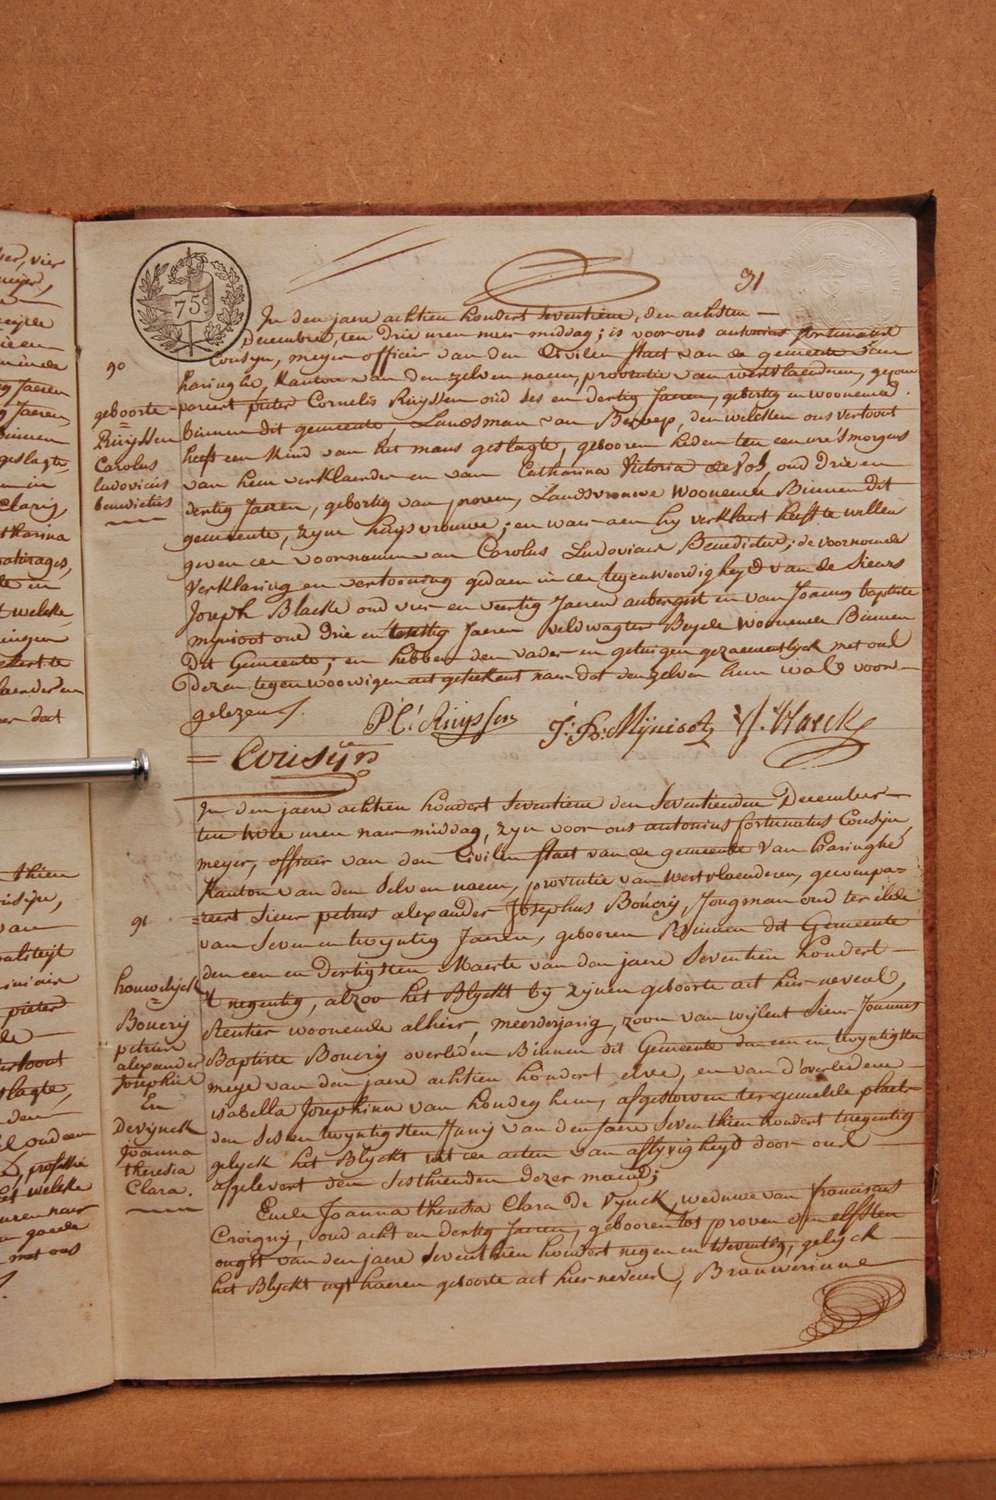 31
75c
In den jaere achtien hondert seventiene, den achtsten
December, ten drie uren naer middag; is voor ons antonius fortunatus
Cousyn, meyer officier van den Civilen staet van de gemeente van
haringhe, kanton van den zelven naem, provintie van westvlaenderen, gecom-
pareert pieter Cornelis Ruyssen oud ses en dertig Jaeren, gebortig en woonende
binnen dit gemeente, Landsman van Beroep, den welcken ons vertoont
heeft een kind van het mans geslagte, gebooren heden ten een ure 's morgens
van hem verklaerder en van Catharina Victoria de Vos, oud drie en
dertig Jaeren, gebortig van proven, Landsvrouwe woonende Binnen dit
gemeente, zyne huysvrouwe; en waer aen hy verklaert heeft te willen
geven de voornamen van Carolus Ludovicus Benedictus; de voornoemde
verklaring en vertooning gedaen in de tegenwoordigheyd van de Sieurs
Joseph Blaeke oud vier en veertig Jaeren aubergist en van Joannes baptiste
mynioot oud drie en Jaeren veldwagter Beyde woonende Binnen
Dit Gemeente; en hebben den vader en getuigen gezaementlyck met ons
Dezen tegenwoordigen act geteekent naer dat den zelven hun was voor-
gelezen.
P: C: Ruyssen J: B: Mynioot J. Blaeck
= Cousyn
90
geboorte
=
Ruyssen
Carolus
ludovicus
benedictus
In den jaere achtien hondert Seventiene den Seventienden December
ten twee uren naer middag, zyn voor ons antonius fortunatus Cousyn,
meyer, officier van den Civilen staet van de gemeente van haringhe
Kanton van den Selven naem, provintie van westvlaenderen, gecompa-
reert Sieur petrus alexander Josephus Boucry, Jongman oud ter elde
van Seven en twyntig Jaeren, gebooren Binnen dit Gemeente
den een en dertigsten Maerte van den jaere Seventien hondert
't negentig, alzoo het Blyckt by zynen geboorte act hier nevens,
Rentier woonende alhier, meerderjarig, zoon van wylent Sieur Joannes
Baptiste Boucry overleden Binnen dit Gemeente den een en twyntigsten
meye van den jaere achtien hondert elve, en van d'overledene
isabella Josephina van houdeghem, afgestorven ter gemelde plaets
den Ses en twyntigsten Juny van den Jaere Seventhien hondert tnegentig
gelyck het Blyckt uit de acten van aflyvigheyd door ons
afgelevert den Sesthienden dezer maend;
Ende Joanna theresia Clara De Vynck, weduwe van franciscus
Croigny, oud acht en dertig Jaeren, gebooren tot proven den elfsten
ougst van den jaere Seventhien hondert negen en tseventig, gelyck
het Blyckt uyt haeren geboorte act hier nevens, Brauwerinne
91
houwelyck
=
Boucry
petrus
alexander
Josephus
En
Devynck
Joanna
theresia
Clara.